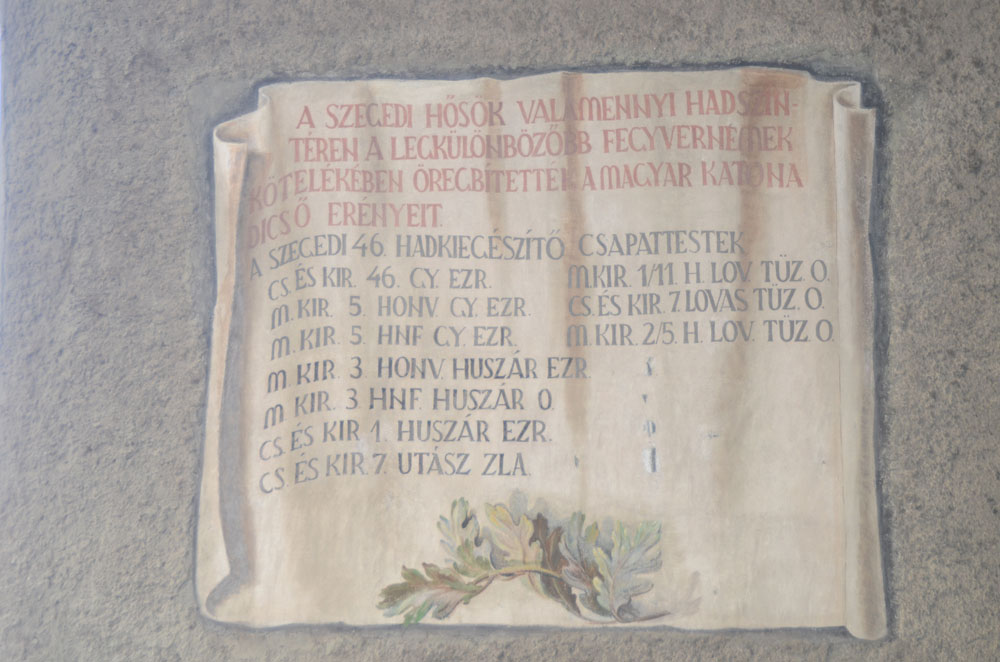 A SZEGEDI HŐSÖK VALAMENNYI HADSZÍN-
TÉREN A LEGKÜLÖNBÖZŐBB FEGYVERNEMEK
KÖTELÉKÉBEN ÖREGBÍTETTÉK A MAGYAR KATONA
DICSŐ ERÉNYEIT.
A SZEGEDI 46. HADKIEGÉSZÍTŐ CSAPATTESTEK
CS. ÉS KIR. 46. GY. EZR. M.KIR. 1/11. H. LOV. TÜZ. O.
M. KIR. 5. HONV. GY. EZR. CS. ÉS KIR. 7. LOVAS TÜZ. O.
M. KIR. 5. HNF. GY. EZR. M. KIR. 2/5. H. LOV. TÜZ. O.
M. KIR. 3. HONV. HUSZÁR EZR.
M. KIR. 3 HNF. HUSZÁR O.
CS. ÉS KIR 1. HUSZÁR EZR.
CS. ÉS KIR. 7. UTÁSZ ZLA.